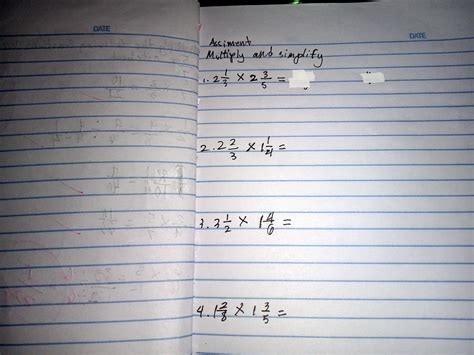 DATE
DATE
Assiment
Multiply and simplify
1. 2 1/3 × 2 3/5 =
2. 2 2/3 × 1 1/4 =
3. 3 1/2 × 1 4/6 =
4. 1 2/8 × 1 3/5 =